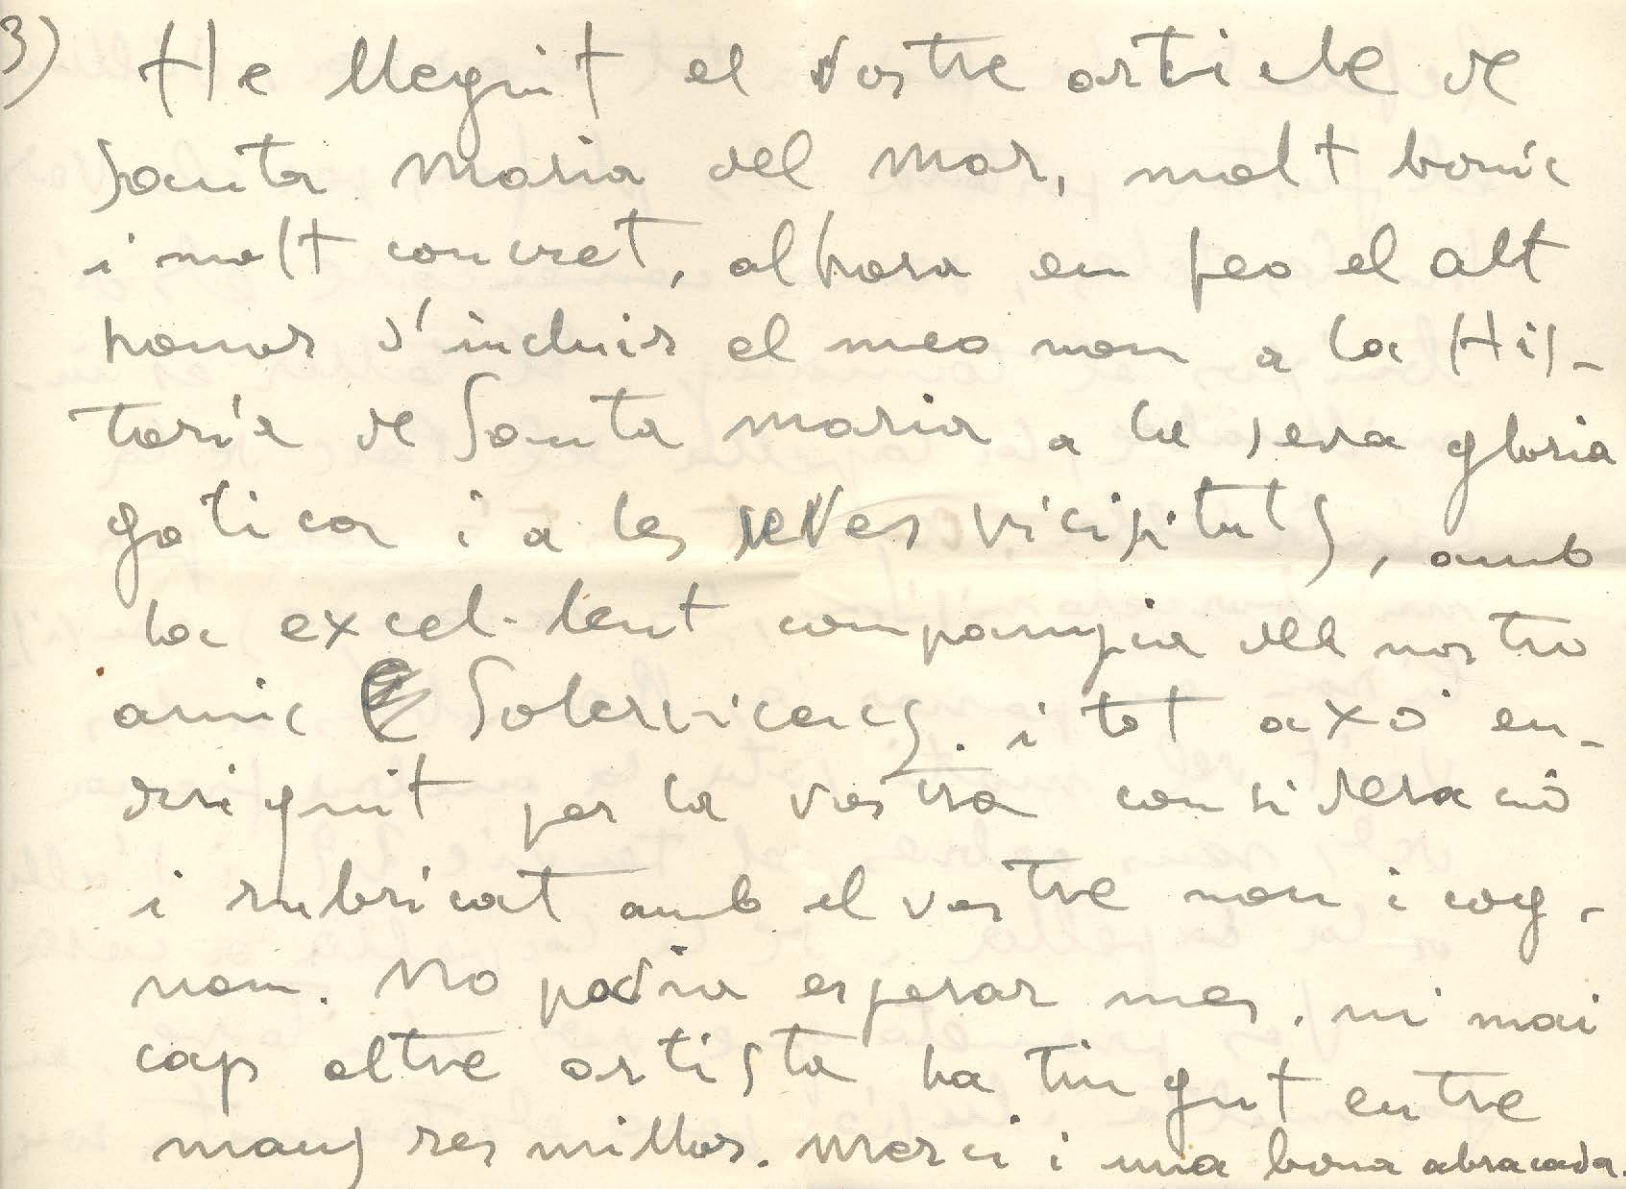 3) He lleguit el vostre article de
Santa Maria del Mar, molt bonic
i molt concret, alhora em feo el alt
honor d'incluir el meo nom a la His-
toria de Santa Maria a la seva gloria
gotica i a les seves vicisituts, amb
la excel·lent companyia del nostro
amic Solervicens. i tot axó en-
driguit per la vostra consideració
i rubricat amb el vostre nom i cog-
nom. No podia esperar mes, ni mai
cap altre artista ha tingut entre
mans res millor. Merci i una bona abracada.